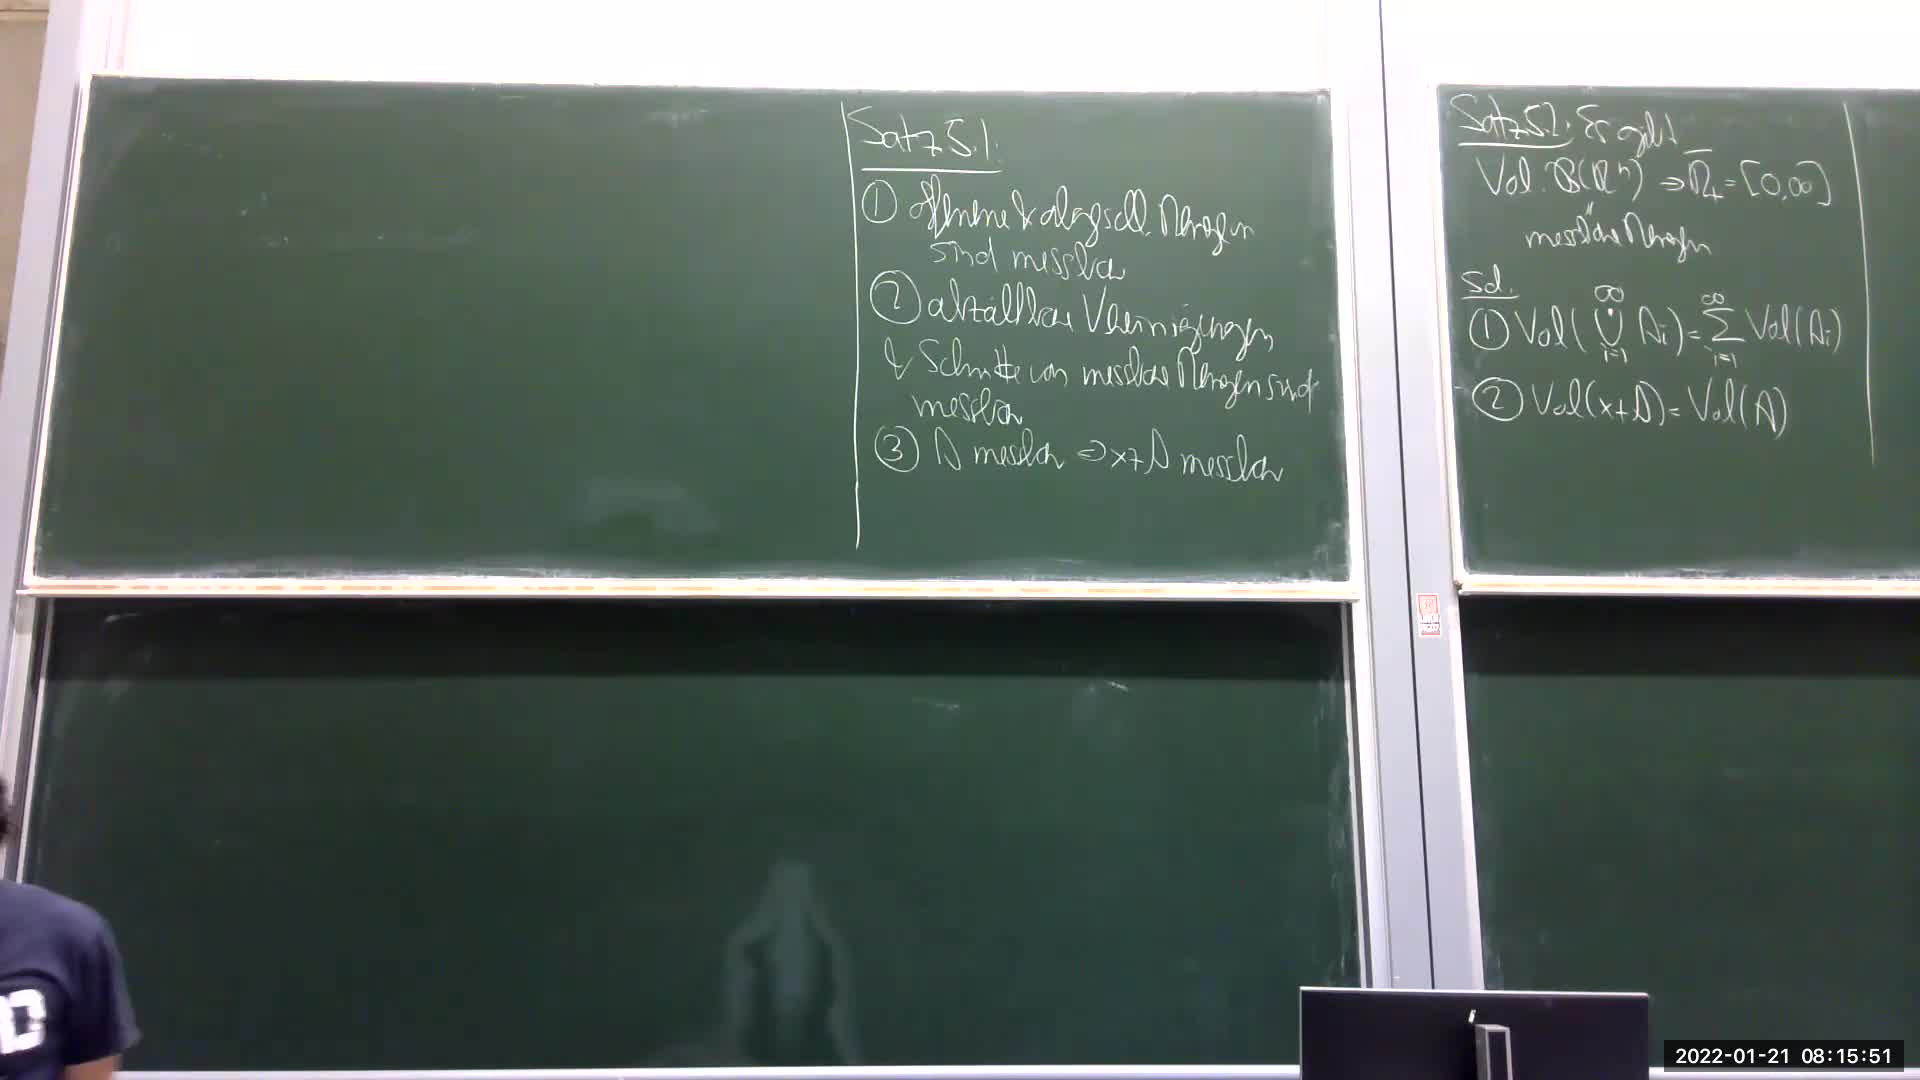 Satz 5.1:
① Offene & abgeschl. Mengen
sind messbar
② abzählbare Vereinigungen
& Schnitte von messbare Mengen sind
messbar
③ A messbar ⇒ x+A messbar
Satz 5.2: Es gibt
Vol: B(ℝⁿ) → ℝ̄₊ = [0,∞]
"
messbare Mengen
sd.
① Vol(⋃̇_{i=1}^∞ A_i) = ∑_{i=1}^∞ Vol(A_i)
② Vol(x+A) = Vol(A)
2022-01-21 08:15:51